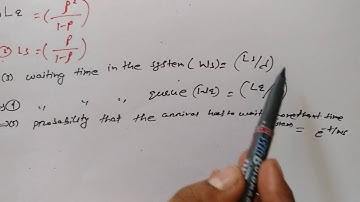 Lq = (ρ²/1-ρ)
② Ls = (ρ/1-ρ)
(3) waiting time in the system (Ws) = (Ls/λ)
(4) " " " queue (Wq) = (Lq/
(5) probability that the arrival has to wait time
= e^-t/ws